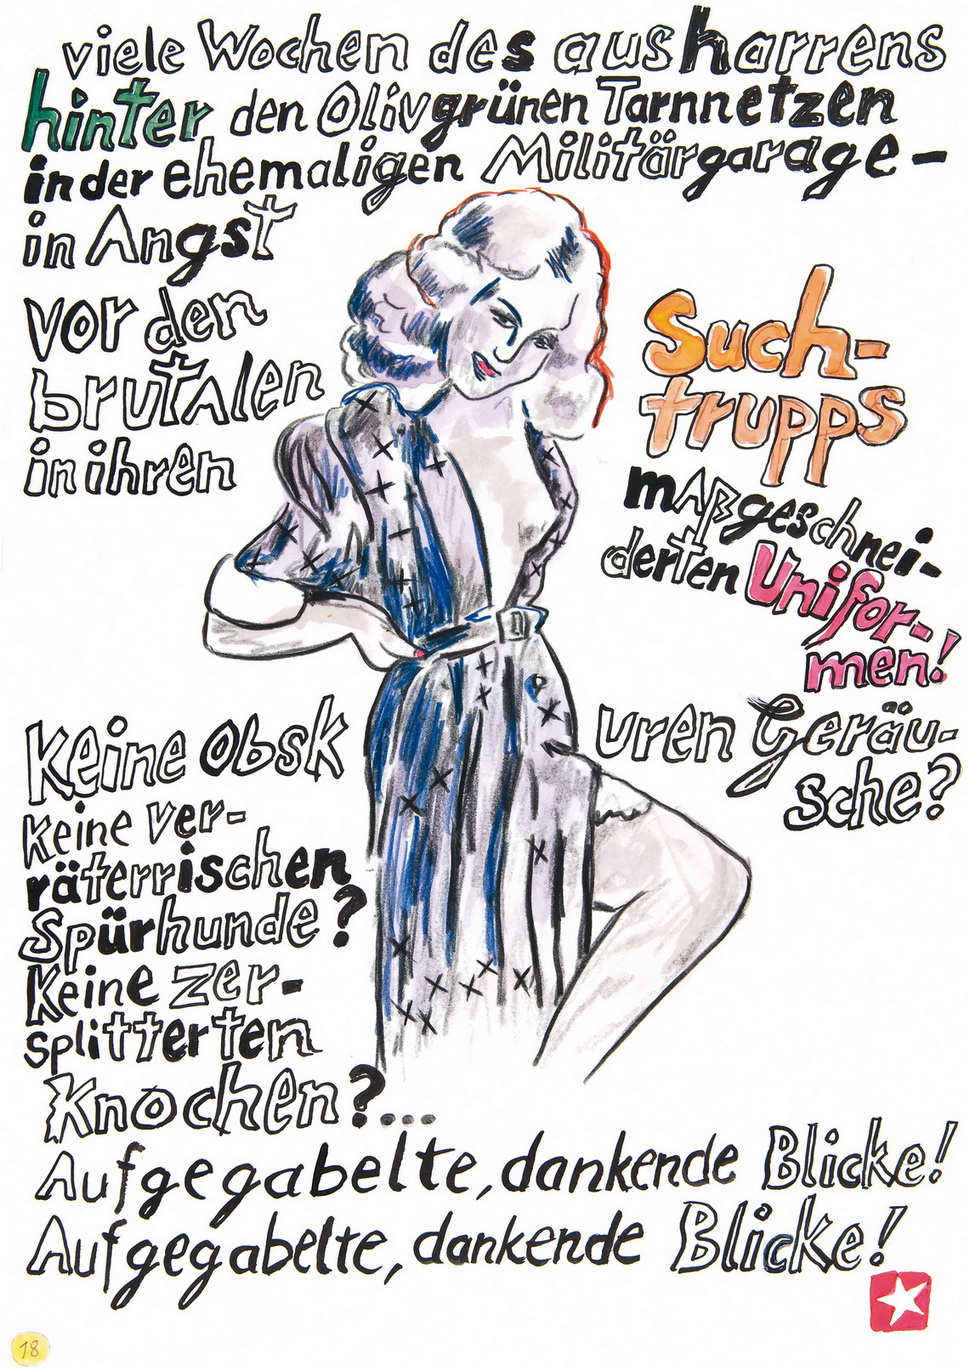 viele Wochen des ausharrens
hinter den Olivgrünen Tarnnetzen
in der ehemaligen Militärgarage –
in Angst
vor den
brutalen
in ihren
Such-
trupps
maßgeschnei-
derten Unifor-
men!
Keine obsk uren Geräu-
sche?
Keine ver-
räterrischen
Spürhunde?
Keine zer-
splitterten
Knochen?...
Aufgegabelte, dankende Blicke!
Aufgegabelte, dankende Blicke!
18